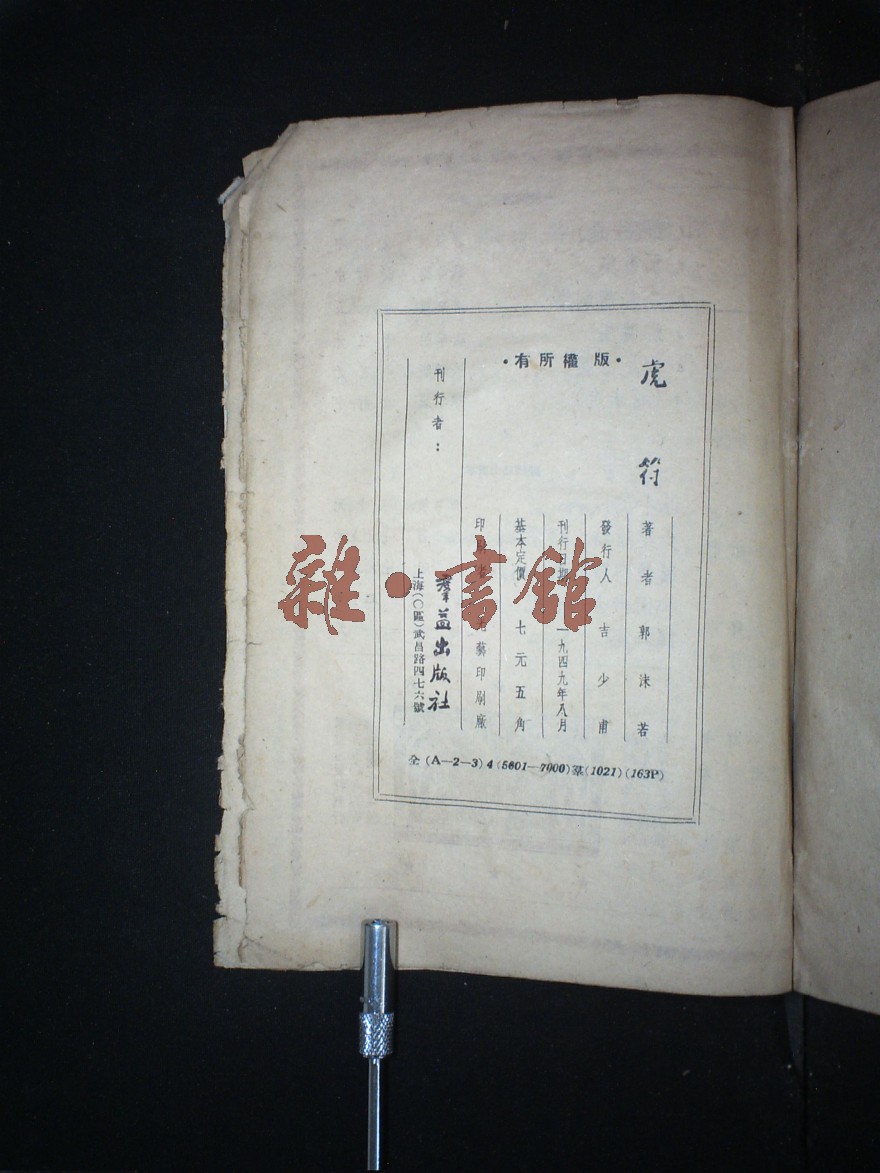 虎符
·版權所有·
著者 郭沫若
發行人 吉少甫
刊行日期 一九四九年八月
基本定價 七元五角
印刷者 藝印刷廠
刊行者：
羣益出版社
上海(〇區)武昌路四七六號
全(A—2—3)4(5601—7000)羣(1021)(163P)
雜·書館